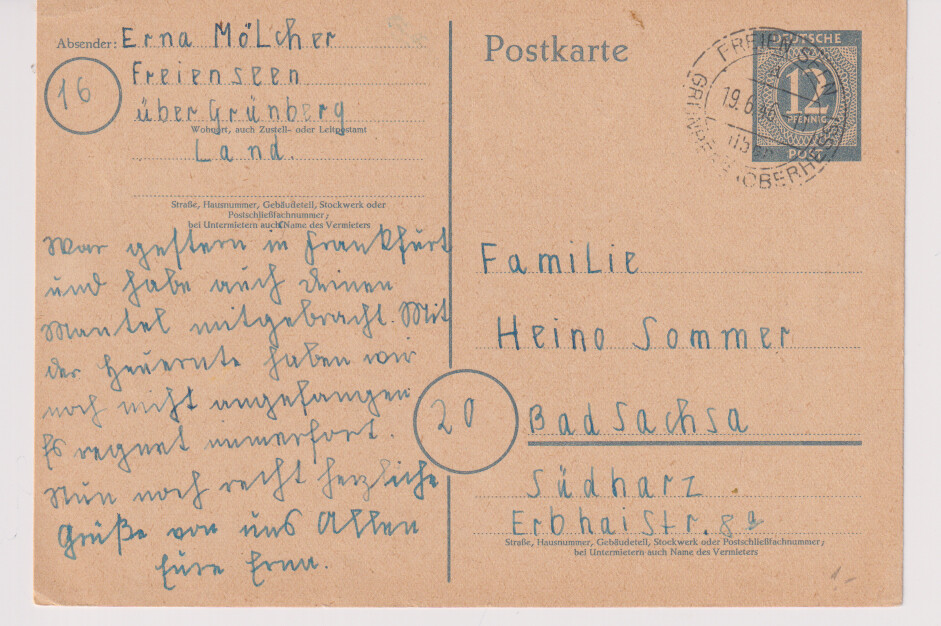 Absender: Erna Mölcher
16
Freienseen
über Grünberg
Wohnort, auch Zustell- oder Leitpostamt
Land.
Straße, Hausnummer, Gebäudeteil, Stockwerk oder
Postschließfachnummer;
bei Untermietern auch Name des Vermieters
War gestern in Frankfurt
und habe auch deinen
Mantel mitgebracht. Mit
der Heuernte haben wir
noch nicht angefangen
Es regnet immerfort.
Nun noch recht herzliche
Grüße von uns Allen
Eure Erna.
Postkarte
DEUTSCHE
12
PFENNIG
POST
FREIENSEEN
19.6.46
über
GRÜNBERG (OBERHESS)
Familie
Heino Sommer
20
Bad Sachsa
Südharz
Erbhaistr. 8a
Straße, Hausnummer, Gebäudeteil, Stockwerk oder Postschließfachnummer;
bei Untermietern auch Name des Vermieters
1.-